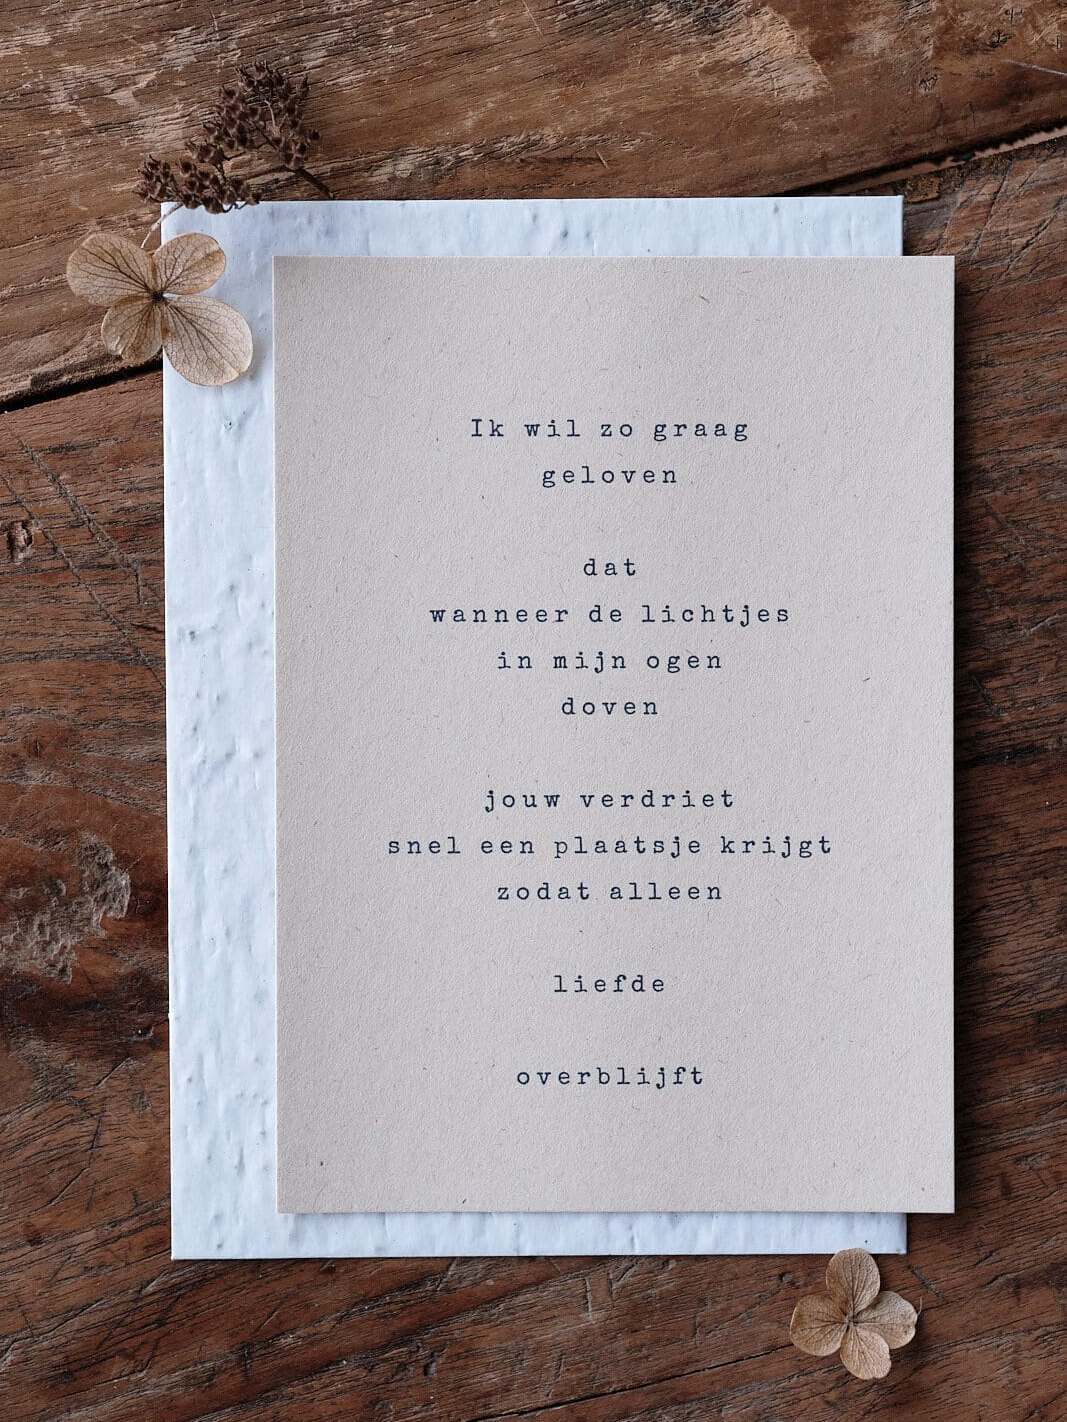 Ik wil zo graag
geloven
dat
wanneer de lichtjes
in mijn ogen
doven
jouw verdriet
snel een plaatsje krijgt
zodat alleen
liefde
overblijft